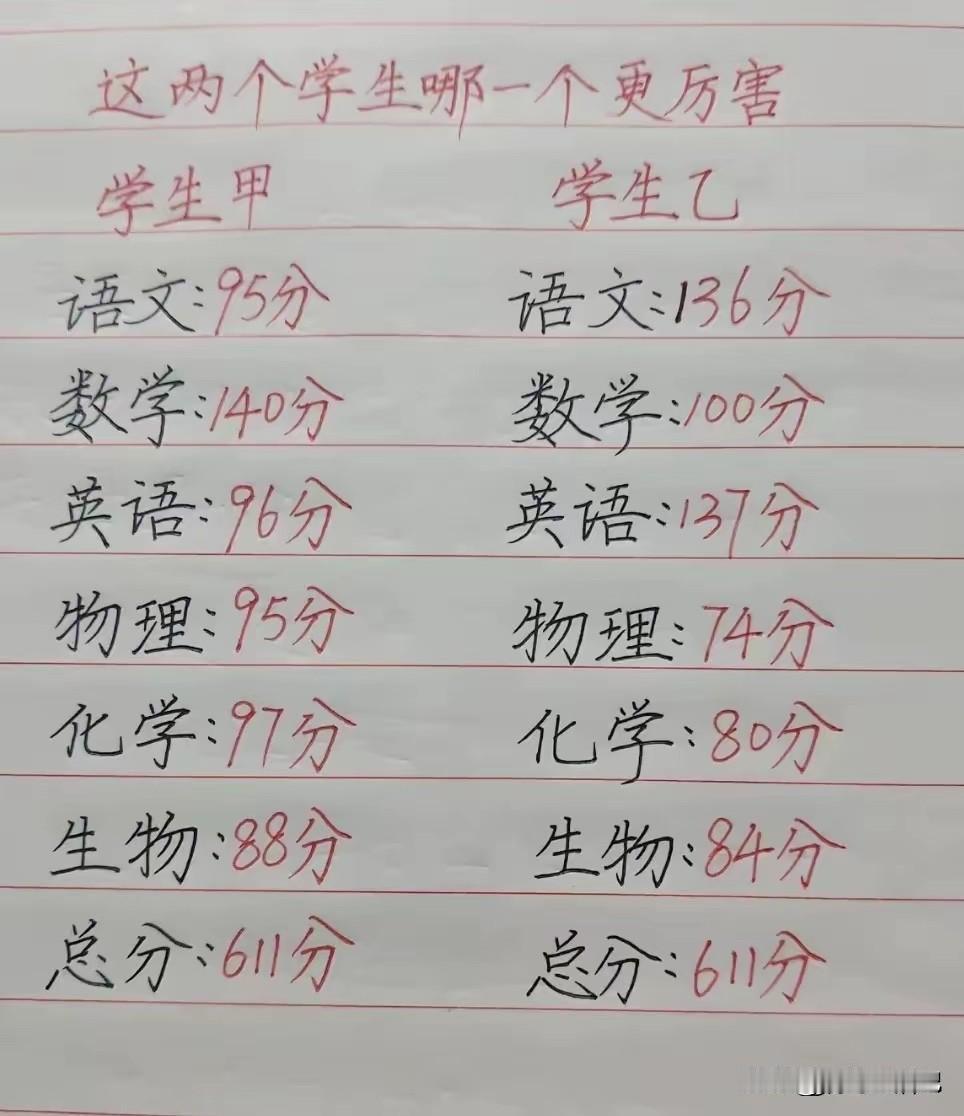 这两个学生哪一个更厉害
学生甲 学生乙
语文:95分 语文:136分
数学:140分 数学:100分
英语:96分 英语:137分
物理:95分 物理:74分
化学:97分 化学:80分
生物:88分 生物:84分
总分:611分 总分:611分